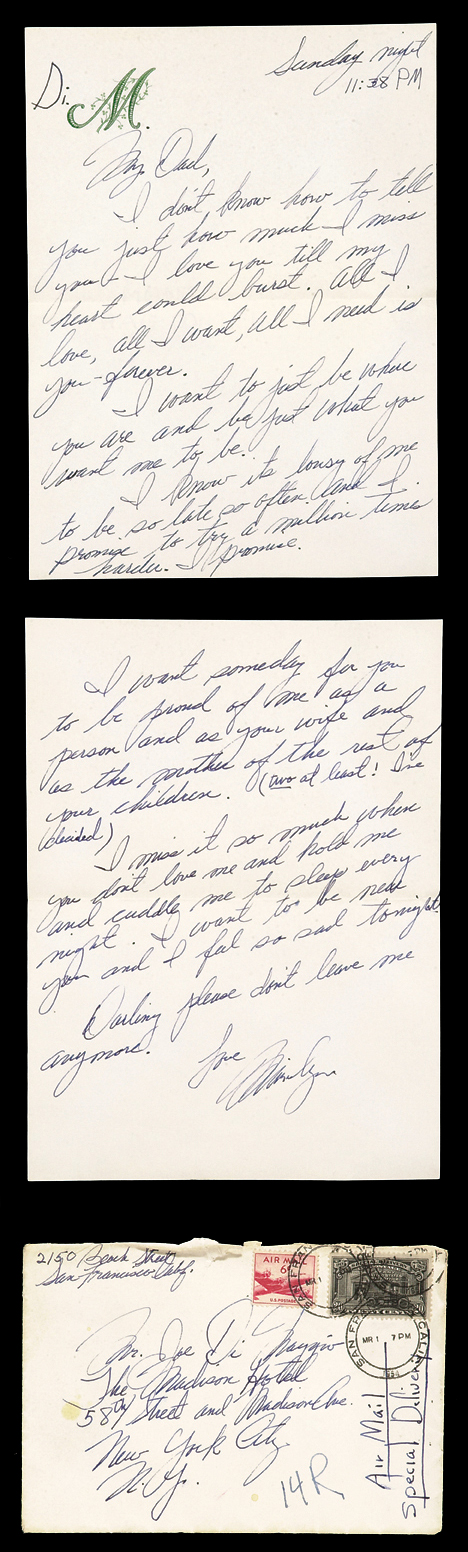 Sunday night
11:38 PM
Di. M.
My Dad,
I don't know how to tell
you just how much I miss
you - I love you till my
heart could burst. All I
love, all I want, all I need is
you - forever.
I want to just be where
you are and be just what you
want me to be.
I know its lousy of me
to be so late so often and I
promise to try a million times
harder. I promise.
I want someday for you
to be proud of me as a
person and as your wife and
as the mother of the rest of
your children. (two at least! I've
decided)
I miss it so much when
you don't love me and hold me
and cuddle me to sleep every
night. I want to be near
you and I feel so sad tonight.
Darling please don't leave me
anymore.
love
Marilyn
2150 Beach Street
San Francisco Calif.
AIR MAIL
6¢
U.S. POSTAGE
SAN FRAN
MR 1
Mr. Joe Di Maggio
The Madison Hotel
58th Street and Madison Ave.
New York City
N.Y.
SAN FR CALIF.
MR 1 7 PM
1954
14R
Air Mail
Special Delivery